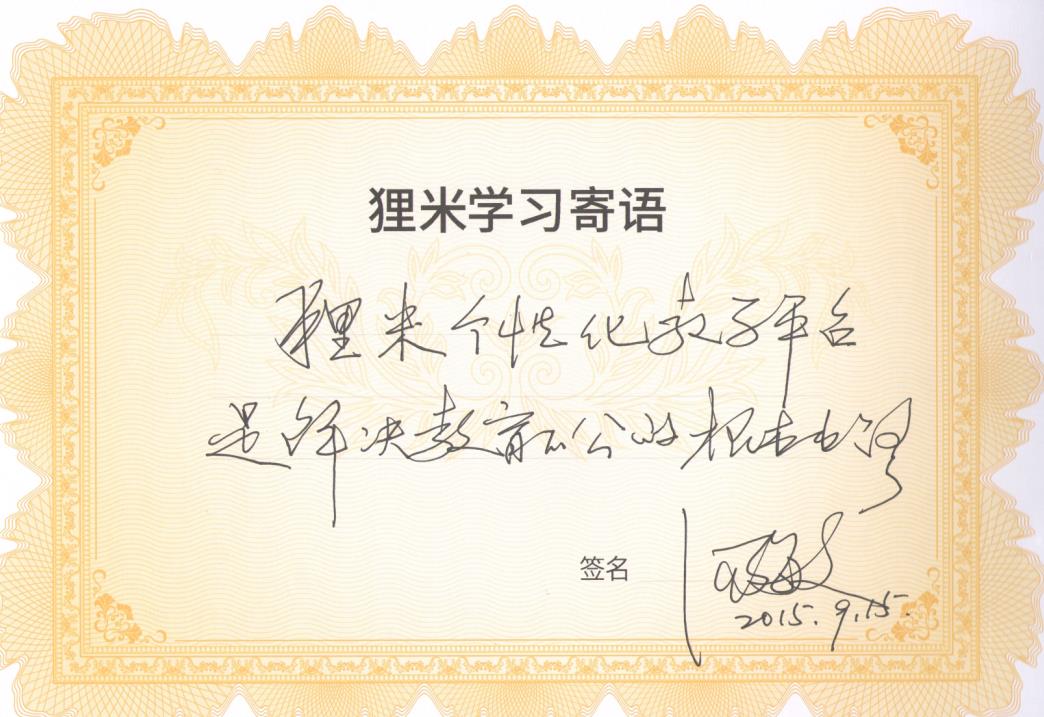 狸米学习寄语
狸米个性化教学平台
是解决教育不公的根本出路
签名
2015.9.15.